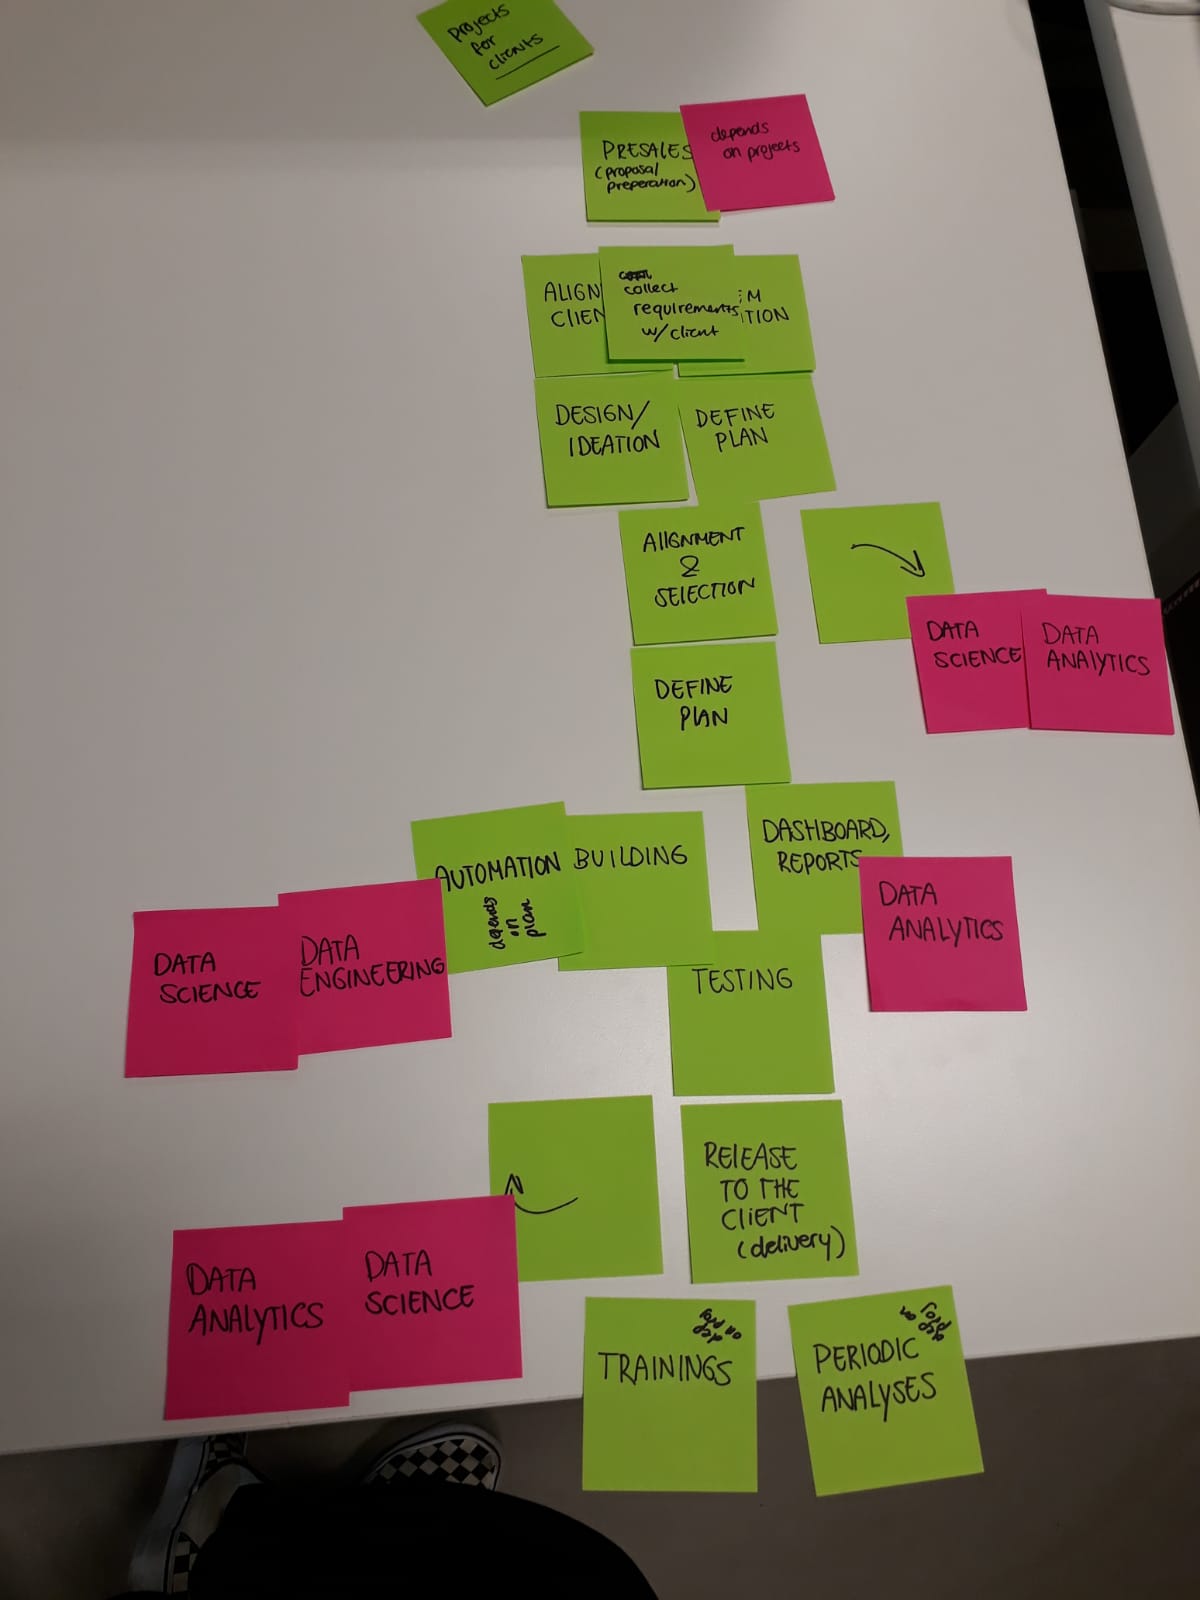 projects
for
clients
PRESALES
(proposal
preperation)
depends
on projects
ALIGN
CLIEN
collect
requirements
w/client
EM
ITION
DESIGN/
IDEATION
DEFINE
PLAN
AlIGNMENT
&
SElECTION
DATA
SCIENCE
DATA
ANAlYTICS
DEFINE
PlAN
AUTOMATION
depends
on
plan
BUILDING
DASHBOARD,
REPORTS
DATA
ANALYTICS
DATA
SCIENCE
DATA
ENGINEERING
TESTING
RElEASE
TO THE
CLIENT
(delivery)
DATA
ANALYTICS
DATA
SCIENCE
dep
on proj
TRAININGS
dep
proj
on
PERIODIC
ANALYSES